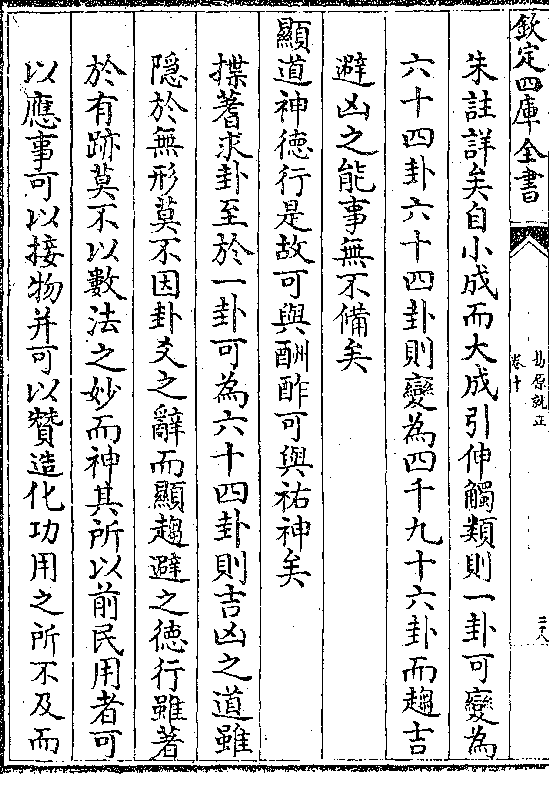 欽定四庫全書
易原就正
卷十
二十八
朱註詳矣自小成而大成引伸觸類則一卦可變為
六十四卦六十四卦則變為四千九十六卦而趨吉
避凶之能事無不備矣
顯道神德行是故可與酬酢可與祐神矣
揲蓍求卦至於一卦可為六十四卦則吉凶之道雖
隱於無形莫不因卦爻之辭而顯趨避之德行雖著
於有跡莫不以數法之妙而神其所以前民用者可
以應事可以接物并可以贊造化功用之所不及而